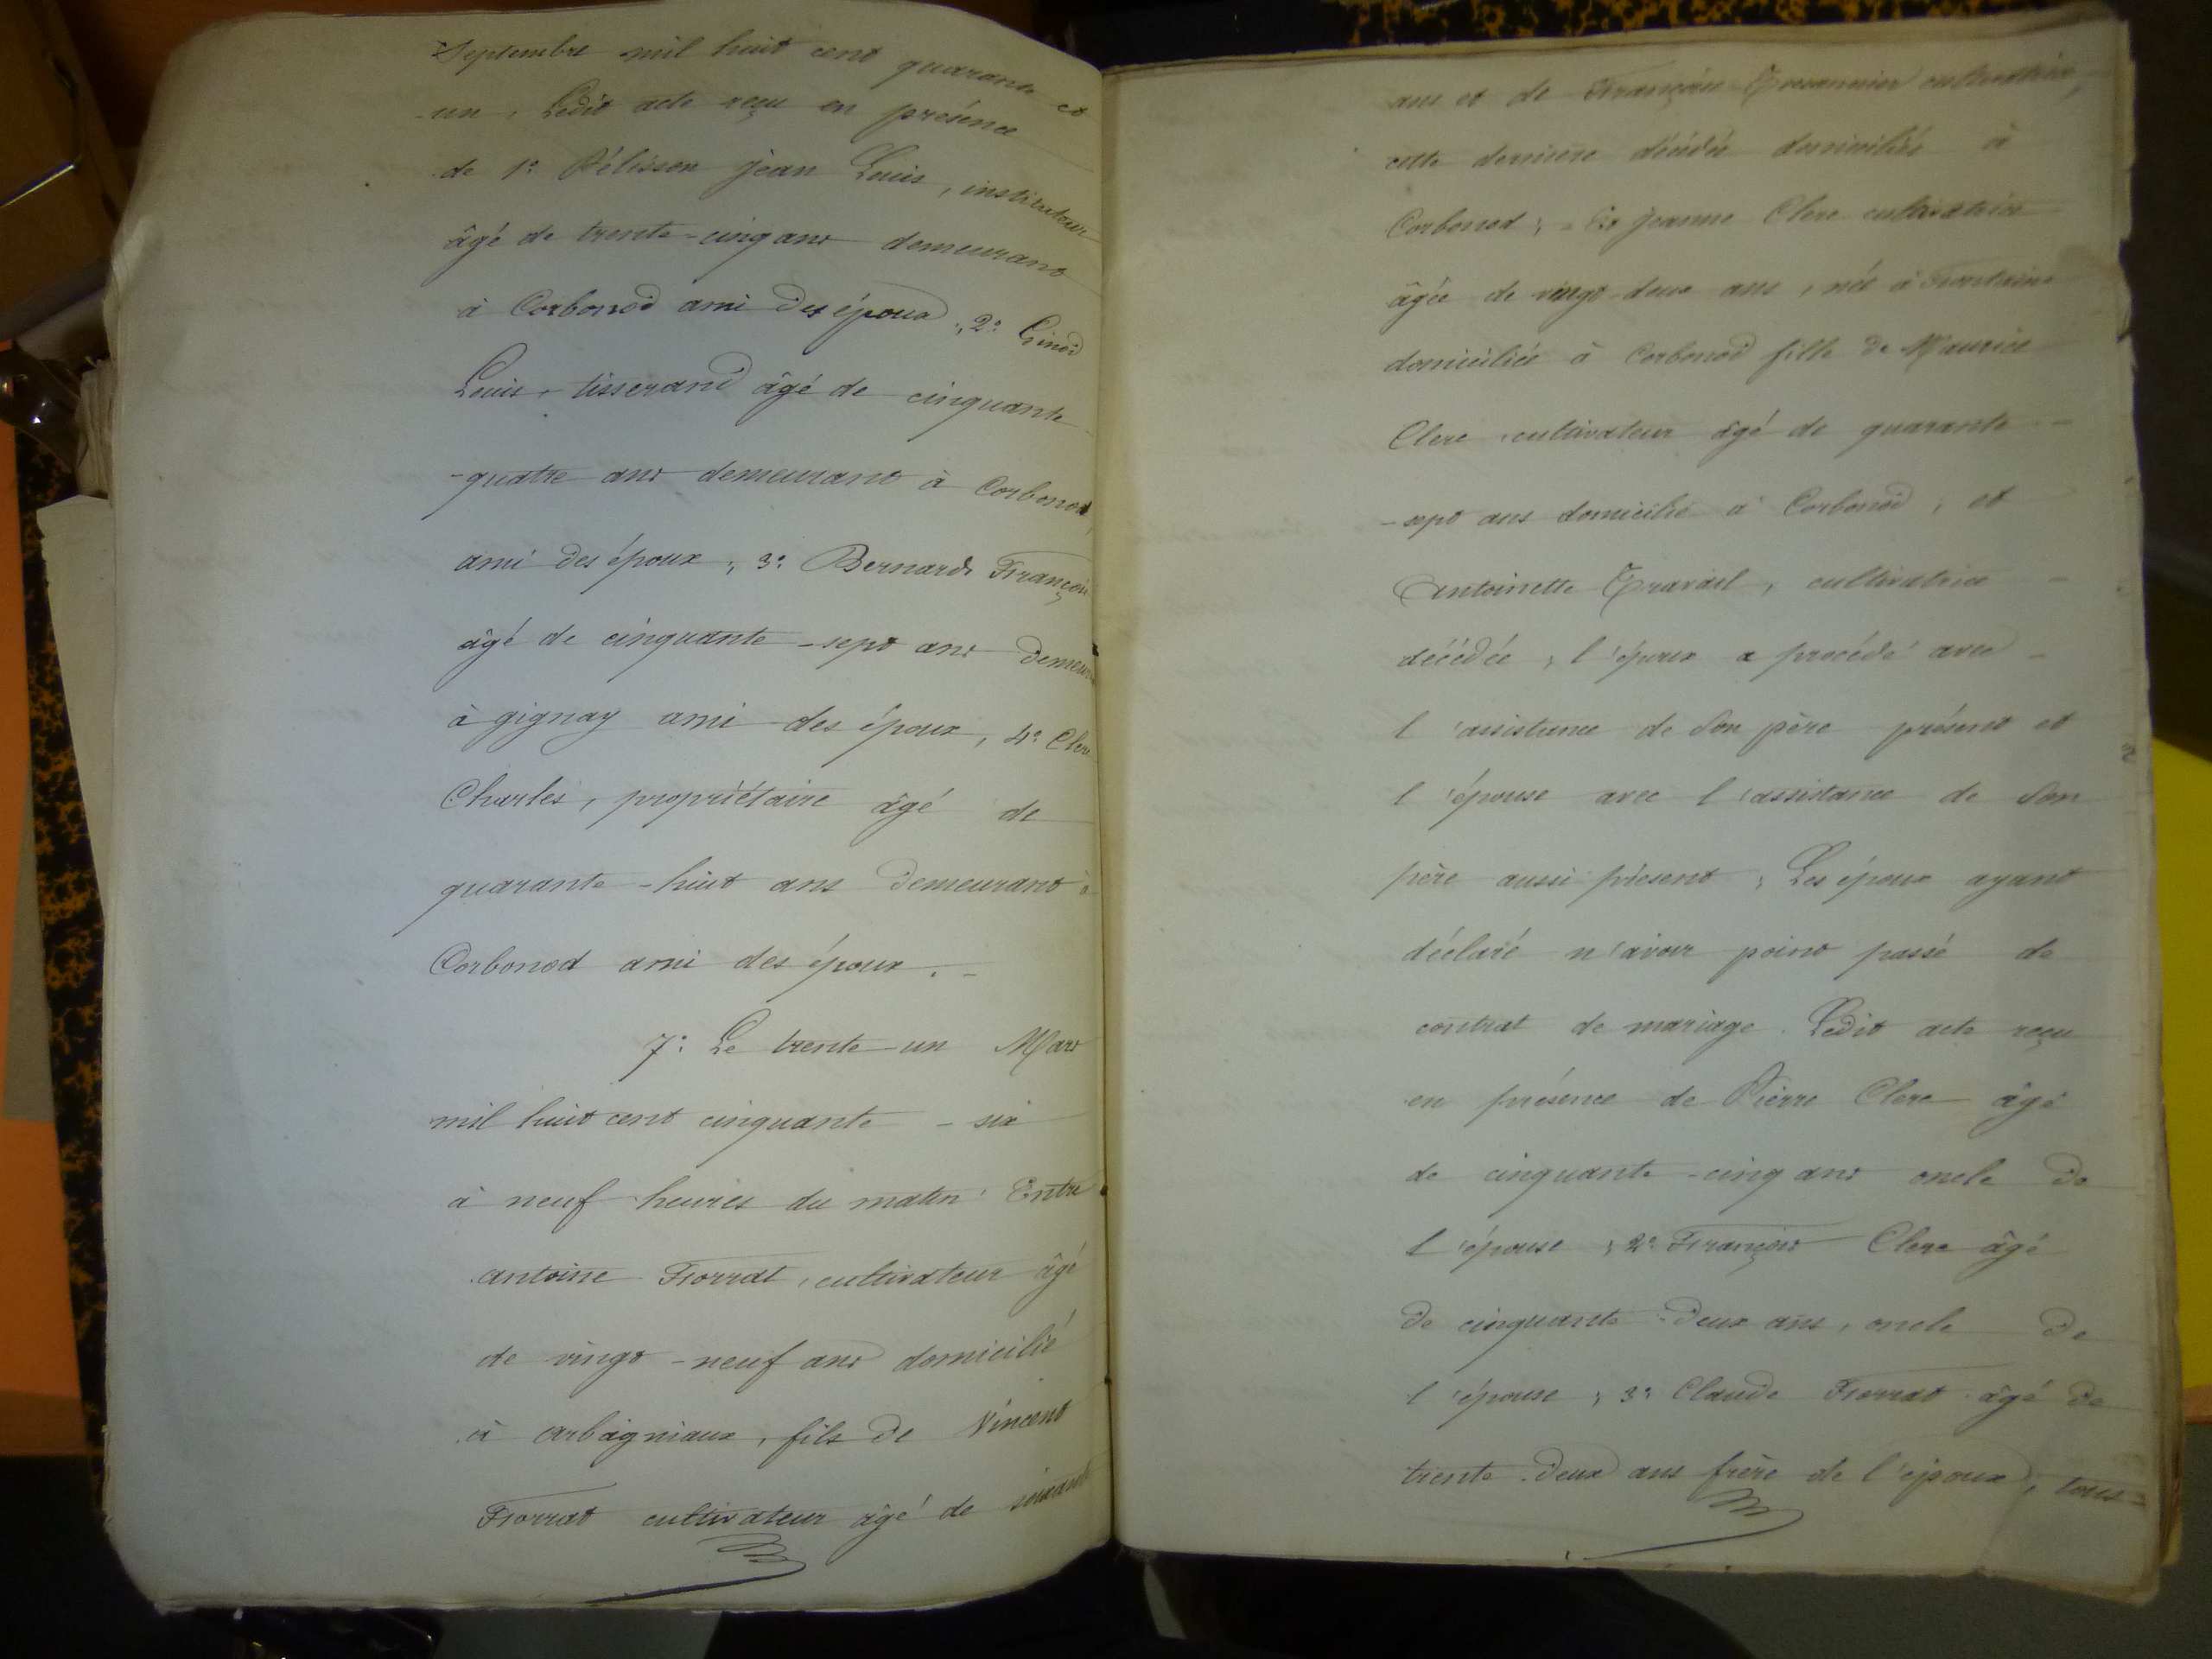 Septembre mil huit cent quarante et
-un, Ledit acte reçu en présence
de 1° Pélisson jean Louis, instituteur
âgé de trente-cinq ans demeurant
à Corbonod ami des époux, 2° Ginod
Louis, tisserand âgé de cinquante
-quatre ans demeurant à Corbonod,
ami des époux, 3° Bernard François
âgé de cinquante-sept ans
à gignay ami des époux, 4° Clerc
Charles, propriétaire âgé de
quarante-huit ans demeurant à
Corbonod ami des époux. -
7° Le trente-un Mars
mil huit cent cinquante - six
à neuf heures du matin Entre
antoine Forrat, cultivateur âgé
de vingt-neuf ans domicilié
à arbagniaux, fils de Vincent
Forrat cultivateur âgé de soixante
ans et de cultivatrice,
cette dernière décédée domiciliée à
Corbonod, - Et jeanne Clerc cultivatrice
âgée de vingt-deux ans, née à
domiciliée à Corbonod fille de Maurice
Clerc cultivateur âgé de quarante -
-sept ans domicilié à Corbonod, et
Antoinette Travail, cultivatrice -
décédée, l'époux a procédé avec -
l'assistance de son père présent et
l'épouse avec l'assistance de son
père aussi présent, Les époux ayant
déclaré n'avoir point passé de
contrat de mariage. Ledit acte reçu
en présence de Pierre Clerc âgé
de cinquante-cinq ans oncle de
l'épouse, 2° François Clerc âgé
de cinquante-deux ans, oncle de
l'épouse, 3° Claude Forrat âgé de
trente-deux ans frère de l'époux, tous